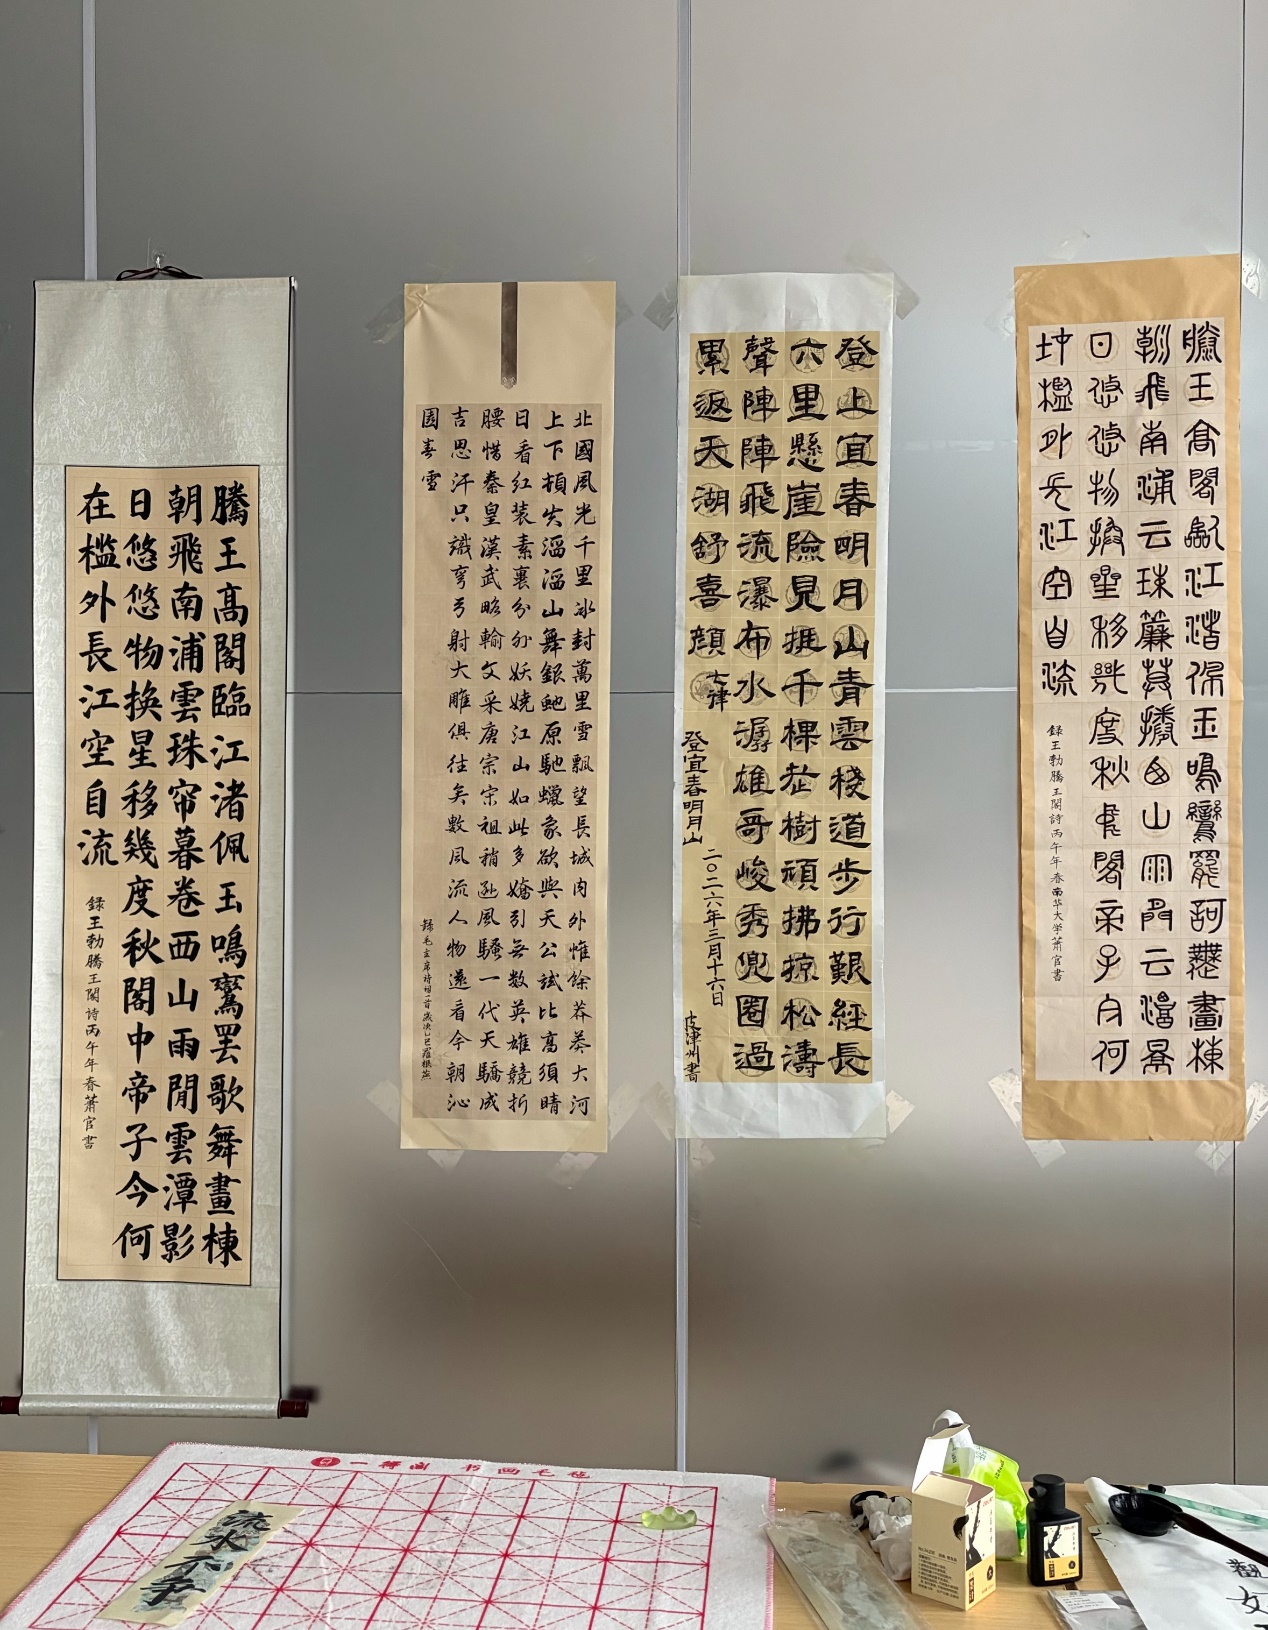 騰王髙閣臨江渚佩玉鳴鸞罢歌舞畫棟
朝飛南浦雲珠帘暮卷西山雨閒雲潭影
日悠悠物换星移幾度秋閣中帝子今何
在槛外長江空自流
録王勃騰王閣詩丙午年春萧官書
北國風光千里冰封萬里雪飄望長城内外惟餘莽莽大河
上下頓失滔滔山舞銀蛇原馳蠟象欲與天公試比高須晴
日看紅装素裹分外妖娆江山如此多嬌引無数英雄競折
腰惜秦皇漢武略輸文采唐宗宋祖稍遜風騷一代天驕成
吉思汗只識彎弓射大雕俱往矣數風流人物還看今朝沁
園春雪
録毛主席詩詞一首
登上宜春明月山青雲棧道步行艱經長
六里懸崖險見挺千棵岩樹頑拂掠松濤
聲陣陣飛流瀑布水潺雄哥峻秀兜圈過
累返天湖舒喜顔 七律
登宜春明月山
二〇二六年三月十六日 皮津州書
騰王高閣臨江渚佩玉鳴鸞罷歌舞畫棟
朝飛南浦云珠簾暮捲西山雨閒云潭影
日悠悠物換星移幾度秋閣帝子今何
在檻外長江空自流
録王勃騰王閣詩丙午年春南华大学萧官書
一得阁 书画毛毡
流水不争
觀
女